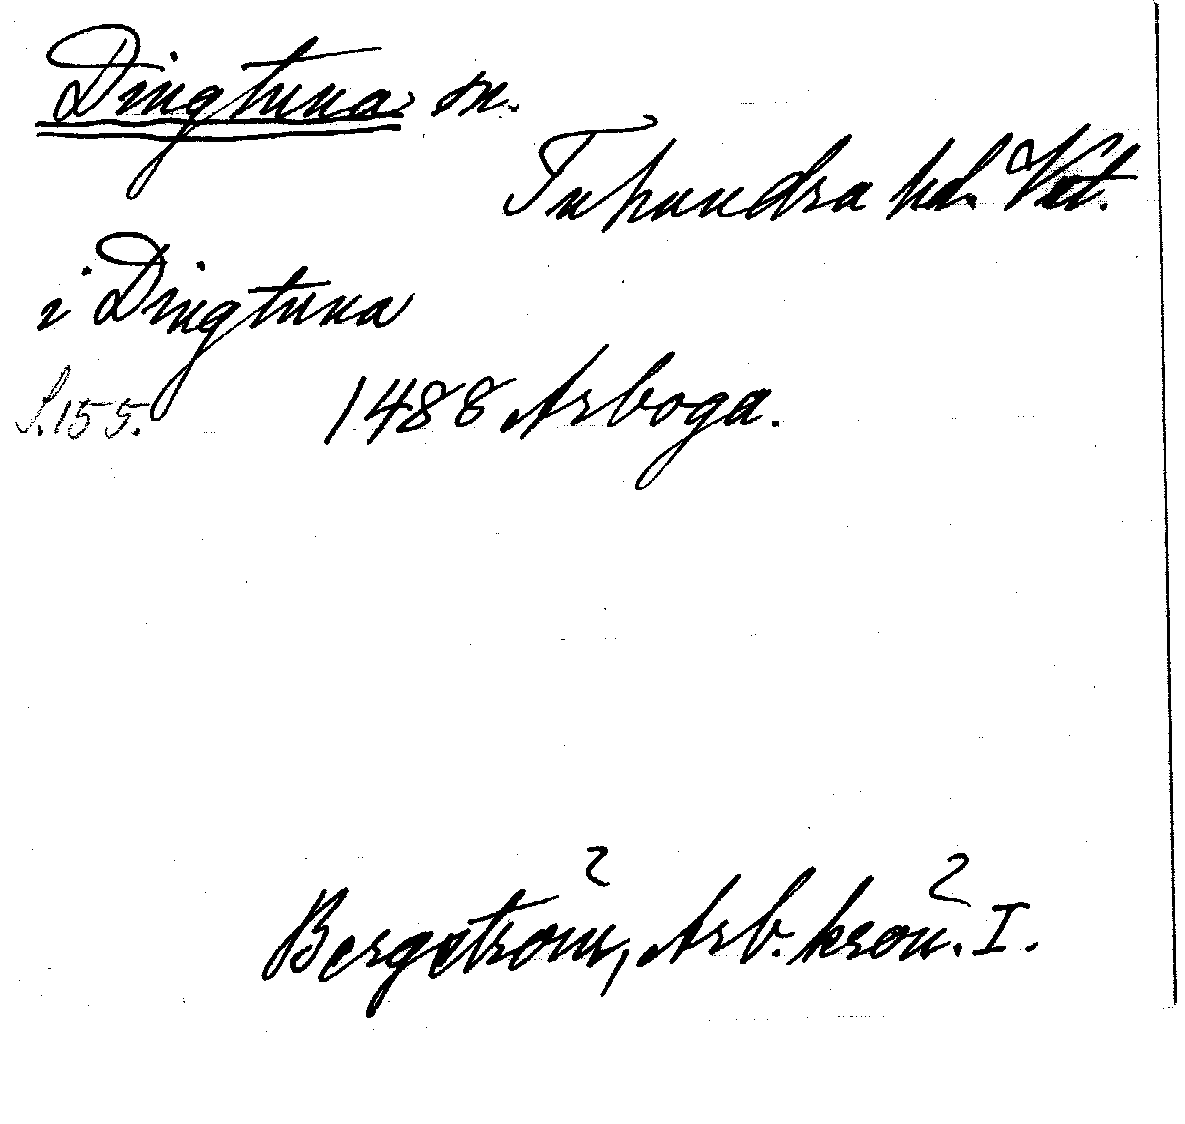 Dingtuna sn.
Tuhundra hd. Vst.
i Dingtuna
S. 155. 1488 Arboga.
Bergström, Arb. krön. I.